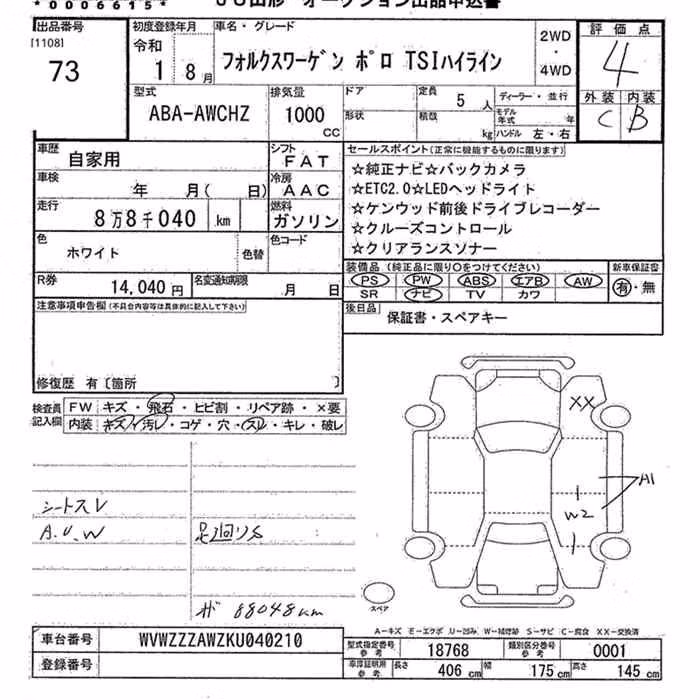 *0006615* JU山形 オークション出品申込書
出品番号
[1108]
73
初度登録年月
令和
1 8月
車名・グレード
フォルクスワーゲン ポロ TSIハイライン
2WD
・
4WD
評価点
4
外装 内装
C B
型式
ABA-AWCHZ
排気量
1000
CC
ドア
形状
定員
5人
積載
kg
ディーラー・並行
モデル年式 年
ハンドル 左・右
車歴
自家用
シフト
FAT
車検
年 月( 日)
冷房
AAC
走行
8万8千040 km
燃料
ガソリン
色
ホワイト
色替
色コード
R券
14,040円
名変通知期限
月 日
セールスポイント(正常に機能するものに限ります)
☆純正ナビ☆バックカメラ
☆ETC2.0☆LEDヘッドライト
☆ケンウッド前後ドライブレコーダー
☆クルーズコントロール
☆クリアランスソナー
装備品(純正品に限り○をつけてください)
PS PW ABS エアB AW
SR ナビ TV カワ
新車保証書
有・無
後日品
保証書・スペアキー
注意事項申告欄(不具合内容等は具体的に記入して下さい)
修復歴 有〔箇所
検査員記入欄
FW キズ・飛石・ヒビ割・リペア跡・×要
内装 キズ・汚レ・コゲ・穴・スレ・キレ・破レ
シートスレ
A.U.W
足廻りS
88048km
XX
A1
W2
スペア
A－キズ E－エクボ U－凹み W－補修跡 S－サビ C－腐食 XX－交換済
車台番号
WVWZZZAWZKU040210
登録番号
型式指定番号
参考
18768
類別区分番号
参考
0001
車庫証明用
参考
長さ
406 cm
幅
175 cm
高さ
145 cm